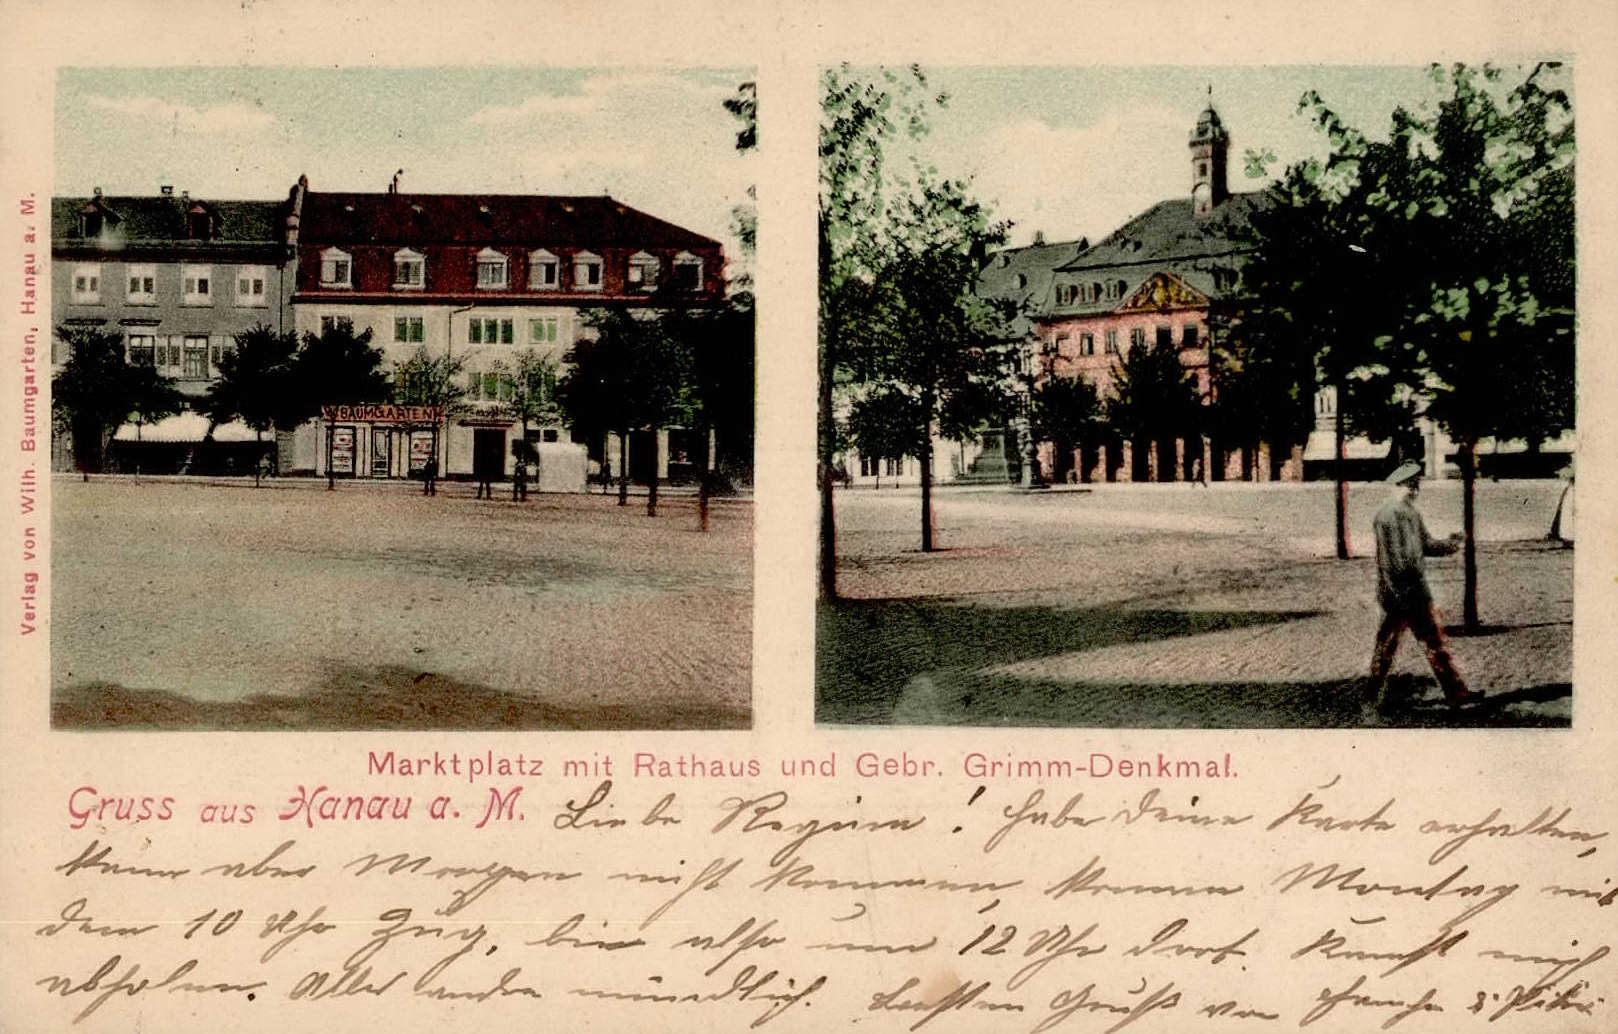 Verlag von Wilh. Baumgarten, Hanau a. M.
W. BAUMGARTEN
Marktplatz mit Rathaus und Gebr. Grimm-Denkmal.
Gruss aus Hanau a. M. Liebe Regina! habe deine Karte erhalten,
kann aber Morgen nicht kommen, komme Montag mit
dem 10 Uhr Zug, bin also um 12 Uhr dort. Kannst mich
abholen. Alles andre mündlich. Besten Gruß von